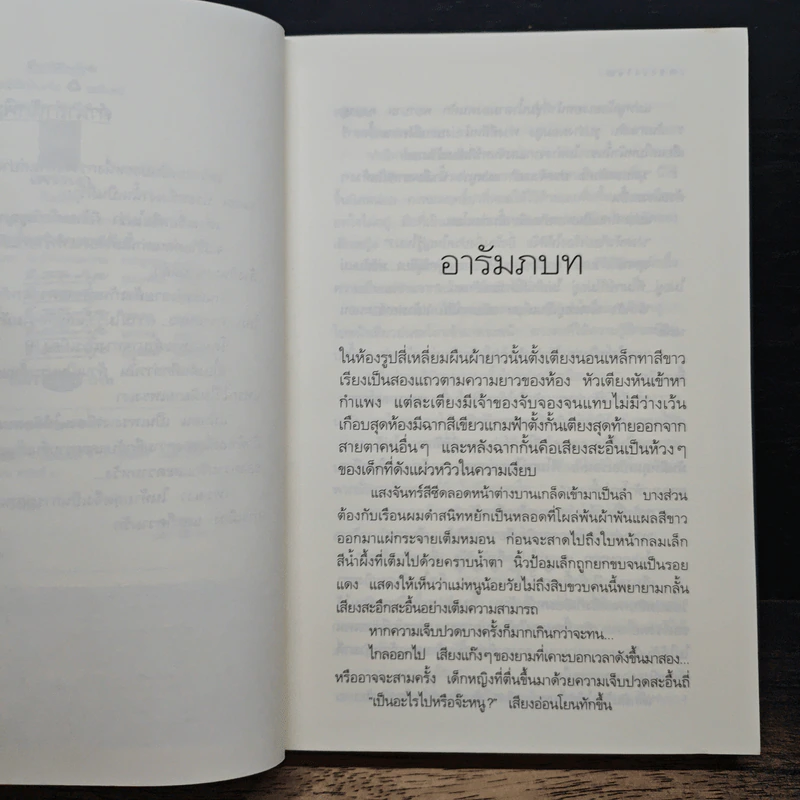 อารัมภบท
ในห้องรูปสี่เหลี่ยมผืนผ้ายาวนั้นตั้งเตียงนอนเหล็กทาสีขาว
เรียงเป็นสองแถวตามความยาวของห้อง หัวเตียงหันเข้าหา
กำแพง แต่ละเตียงมีเจ้าของจับจองจนแทบไม่มีว่างเว้น
เกือบสุดห้องมีฉากสีเขียวแกมฟ้าตั้งกั้นเตียงสุดท้ายออกจาก
สายตาคนอื่นๆ และหลังฉากกั้นคือเสียงสะอื้นเป็นห้วงๆ
ของเด็กที่ดังแผ่วหวิวในความเงียบ
แสงจันทร์สีซีดลอดหน้าต่างบานเกล็ดเข้ามาเป็นลำ บางส่วน
ต้องกับเรือนผมดำสนิทหยักเป็นหลอดที่โผล่พ้นผ้าพันแผลสีขาว
ออกมาแผ่กระจายเต็มหมอน ก่อนจะสาดไปถึงใบหน้ากลมเล็ก
สีน้ำผึ้งที่เต็มไปด้วยคราบน้ำตา นิ้วป้อมเล็กถูกยกขบจนเป็นรอย
แดง แสดงให้เห็นว่าแม่หนูน้อยวัยไม่ถึงสิบขวบคนนี้พยายามกลั้น
เสียงสะอึกสะอื้นอย่างเต็มความสามารถ
หากความเจ็บปวดบางครั้งก็มากเกินกว่าจะทน...
ไกลออกไป เสียงแก๊งๆของยามที่เคาะบอกเวลาดังขึ้นมาสอง...
หรืออาจจะสามครั้ง เด็กหญิงที่ตื่นขึ้นมาด้วยความเจ็บปวดสะอื้นถี่
“เป็นอะไรไปหรือจ๊ะหนู?” เสียงอ่อนโยนทักขึ้น